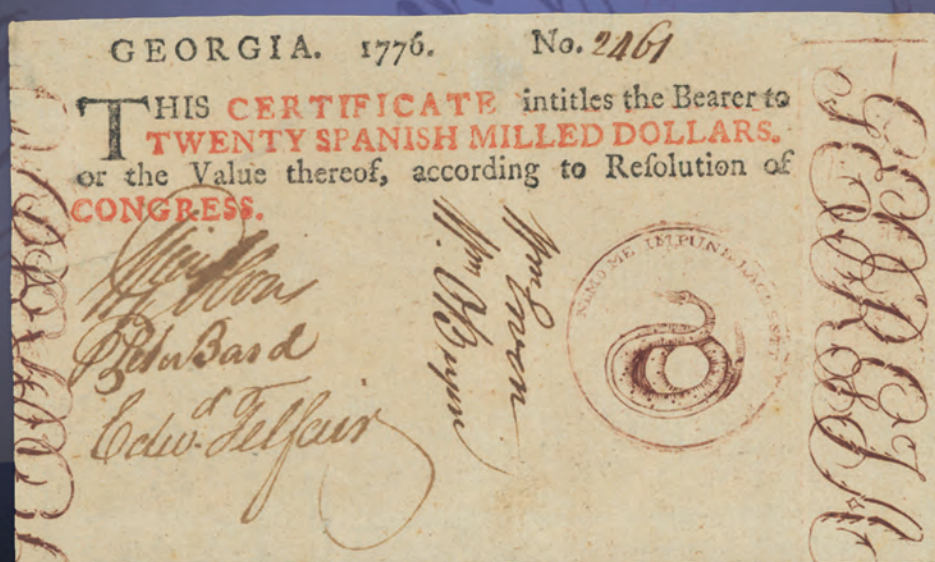 GEORGIA. 1776. No. 2461
THIS CERTIFICATE intitles the Bearer to
TWENTY SPANISH MILLED DOLLARS.
or the Value thereof, according to Reſolution of
CONGRESS.
Peter Bard
Edwd. Telfair
Wm. O'Bryen
NEMO ME IMPUNE LACESSET
GEORGIA